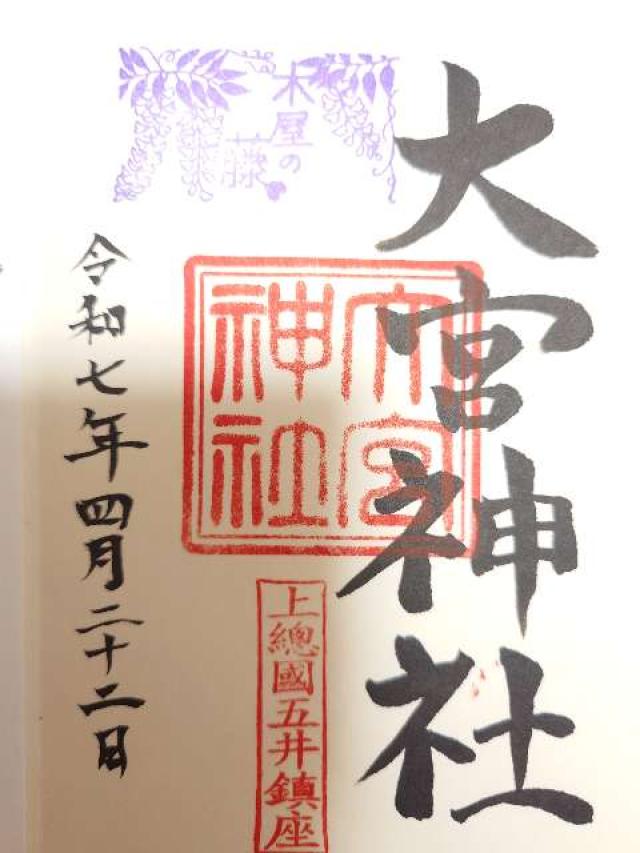 大宮神社
木屋の
藤
大宮
神社
上總國五井鎮座
令和七年四月二十二日